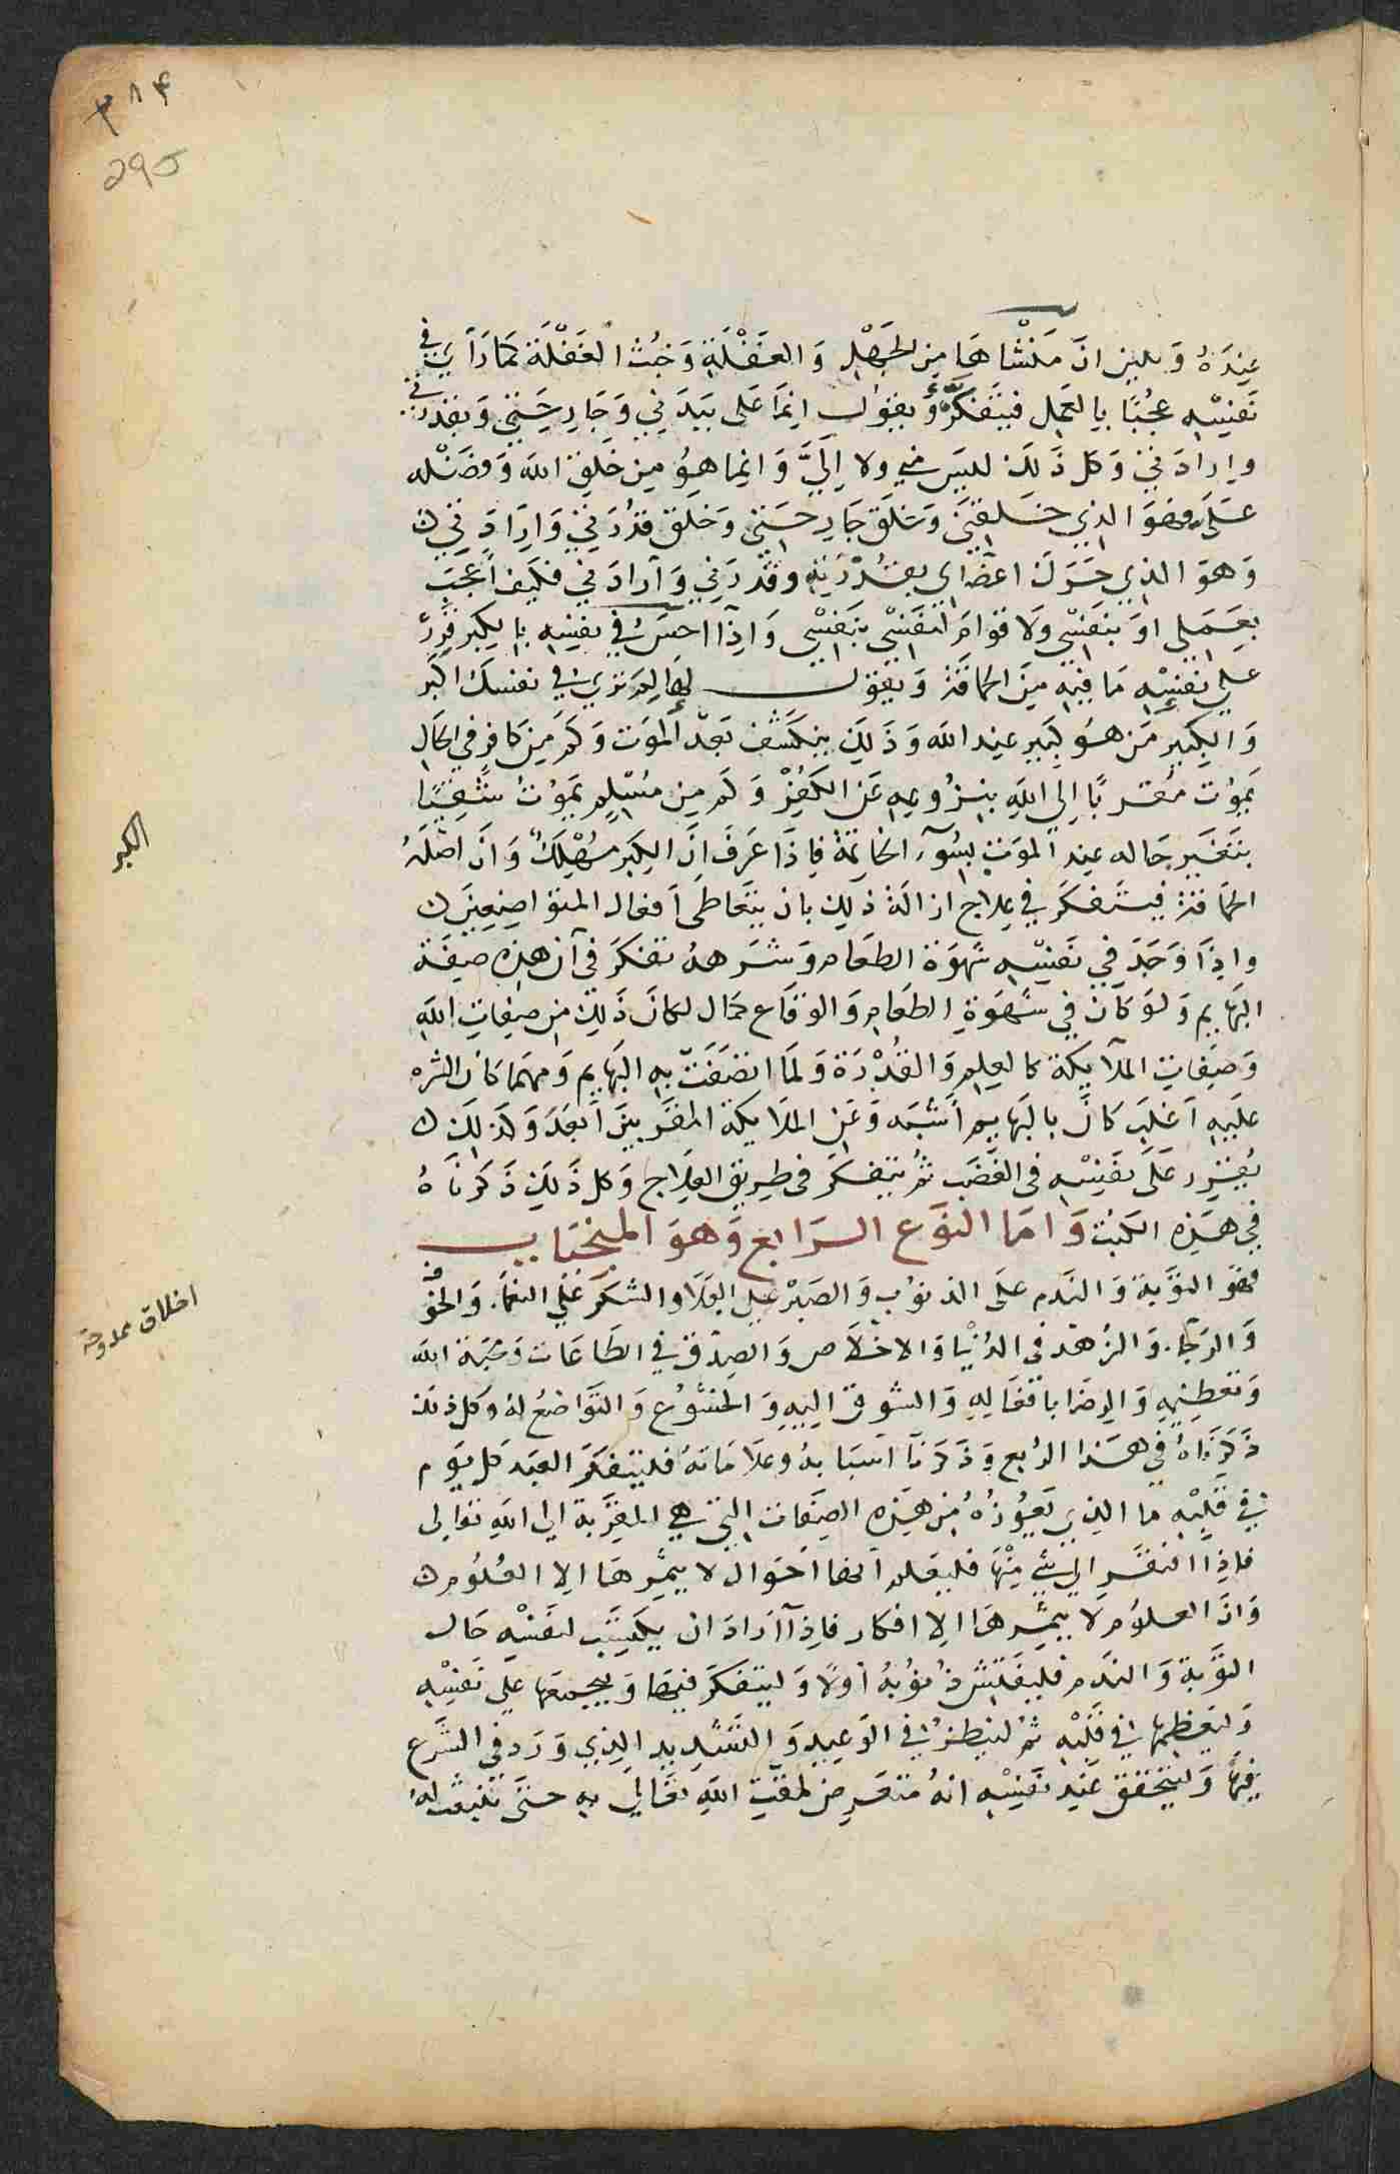 ٣٨٤
295
عِندَهُ وَيبين ان مَنْشَاهَا مِن الجَهْلِ وَ الغَفْلَةِ وَخبُث الغَفْلَة كمَا رَآي في
نَفسِهِ عُجبًا بِالعَمَلِ فيتَفَكرُ وَيقول انما عَملى ببَدَني وَجَارِحَتي وَبقدرتي
وإرادَتي وَكل ذَلكَ ليسَ مني ولا إلَيَّ وَانما هوَ مِن خَلقِ اللهِ وَفضْله
عَلَي فهوَ الذِي خَلقَني وَخلق جَارِحَتي وَخلق قدُرَتي وَإرَادَتي
وَهوَ الذِي حَرَّكَ اعضَاي بقُدْرَتِهِ وقُدرَتي وَإرادَتي فكيف اُعجَب
بعَمَلى اوَ بنفَسْي وَلا قوامَ لنفَسْي بنَفسْي وَاِذَا احسَّ في نفسِهِ بالكِبر قرَّرَ
على نفسِهِ مَا فيهِ مِنَ الحماقَةِ وَيقول لهَا لِمَ ترَي نفسكَ اكبَر
وَالكبير مَن هوَ كبير عِند اللهِ وَذَلكَ ينكشف بَعد الموَت وَكم مِن كافِر في الحَالِ
يمَوُت مُقرَّبًا إلى اللهِ بنزُوعِهِ عَن الكُفرْ وَكم مِن مُسْلِم يمَوُت شقِيًا
بتغَير حَاله عِند الموَتِ بسُوءِ الخاتِمَةِ فاِذَا عَرَفَ ان الكِبَر مُهْلِكٌ وَانَّ اصْلَهُ
الحماقَةُ فيتفكرَ في عِلاجِ ازالَة ذلِك بان يتعَاطى اَفعال المتوَاضِعِينَ
واِذَا وَجَدَ في نَفسِهِ شهوَة الطعَام وَشَرههُ تفكرَ في اَن هذِهِ صِفَة
البَهَايم وَلَوَ كانَ في شهْوَةِ الطعَامِ وَالوقَاع كمَال لكانَ ذَلِك مِن صِفاتِ اللهِ
وَصِفاتِ المَلآيكة كالعِلمِ وَالقُدْرَة وَلَما اتصَفَتْ بهِ البَهَايم وَمهمَا كانَ الشرَه
علَيهِ اَغلبَ كانَ بالبَهَايم اَشبَه وَعَن المَلايكة المقَرَّبينَ اَبعَدَ وَكذلِكَ
يُقرر عَلَى نفسِهِ في الغَضَبِ ثُم يتفكرَ في طرِيقِ العِلاجِ وَكل ذَلِكَ ذَكرنَاهُ
في هَذِهِ الكتب وَامَا النوَع الرَابع وَهوَ المنجيَات
فهوَ التوَبَة وَالنَدم علَى الذنوُب وَالصَبرْ علَى البَلاءِ وَالشكر عَلى النعمَآءِ وَالخوْف
وَالرجَآء وَالزهْد في الدُنيْا وَالاخلاَص وَالصِدْق في الطَاعَات وَمحَبة اللهِ
وَتعظِيمِهِ وَالرِضَا بافعَالِهِ وَالشوق اليهِ وَالخشُوع وَالتوَاضعُ لهُ وَكل ذلكَ
ذَكرنَاهُ في هَذا الربع وَذَكرنَا اَسبَابهُ وَعلاَمَاتهُ فليتفكرَ العَبد كل يوَم
في قلبِهِ ما الذِي يعُوزُهُ مِن هَذِهِ الصِفاتِ التي هي المقرِّبَة الى اللهِ تعالى
فاِذَا افتقَر الى شَي مِنْهَا فليعلم اَنهَا اَحَوال لا يثمِرهَا الا العُلوُم
وَاَنَّ العلوُم لاَ يثمِرهَا الا افكار فاِذَا ارَادَ ان يكتسِبَ لنفسِهِ حَال
التوَبَة وَالندَم فليفتشْ ذُنُوبهُ اَولاً وَليتفكرَ فيهَا وَليجمَعهَا علَى نفسِهِ
وَليعَظمِهَا في قَلبْهِ ثم لينظرْ في الوَعِيدِ وَالتشدِيدِ الذِي وَرَد في الشرَع
فيهَا وَليتحقق عِند نفسِهِ انهُ متعَرِض لمقتِ اللهِ تعَالى بهِ حتى ينبَعث لهُ
الكبر
اخلاق ممدوحة